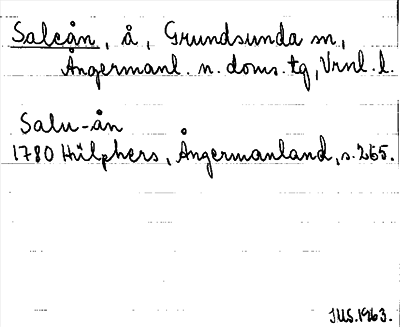 Saluån, å, Grundsunda sn,
Ångermanl. n. doms. tg, Vrnl. l.
Salu-ån
1780 Hülphers, Ångermanland, s. 265.
JUS. 1963.